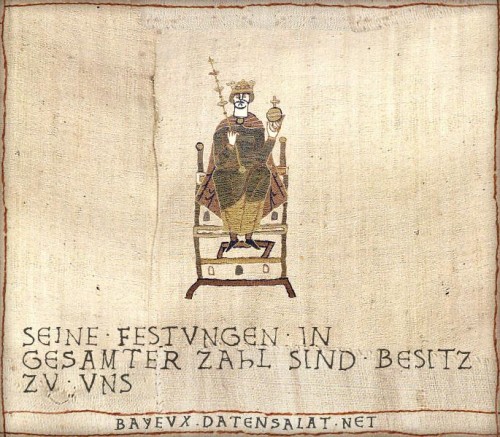 SEINE · FESTVNGEN · IN
GESAMTER ZAhL SIND · BESITZ
ZV · VNS
BAYEVX.DATENSALAT.NET